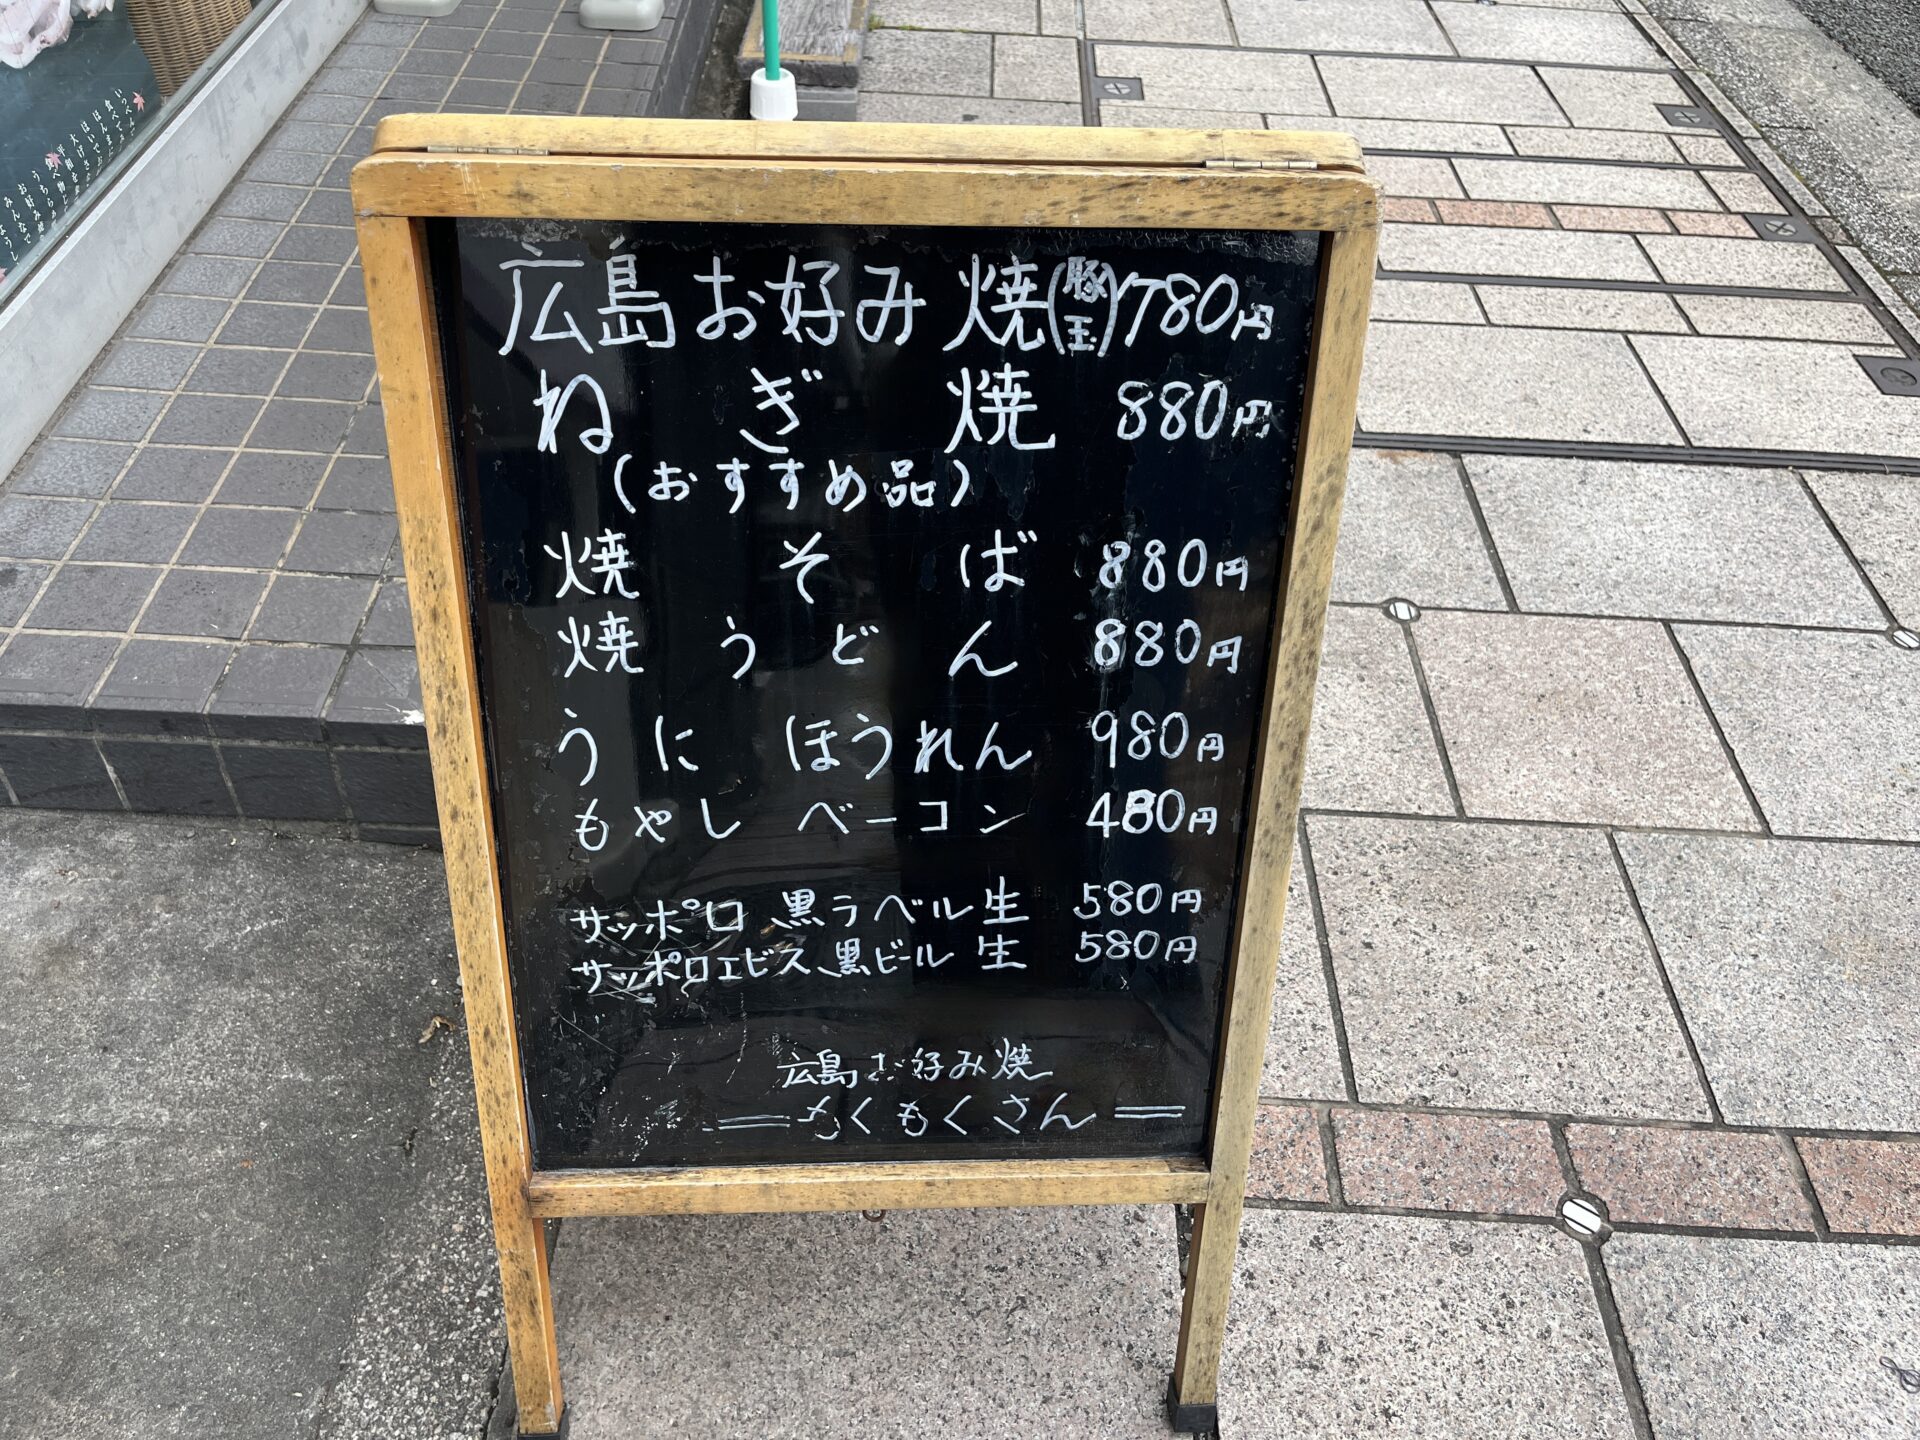 広島お好み焼(豚玉)780円
ねぎ焼 880円
(おすすめ品)
焼そば 880円
焼うどん 880円
うにほうれん 980円
もやしベーコン 480円
サッポロ黒ラベル生 580円
サッポロエビス黒ビール生 580円
広島お好み焼
もくもくさん